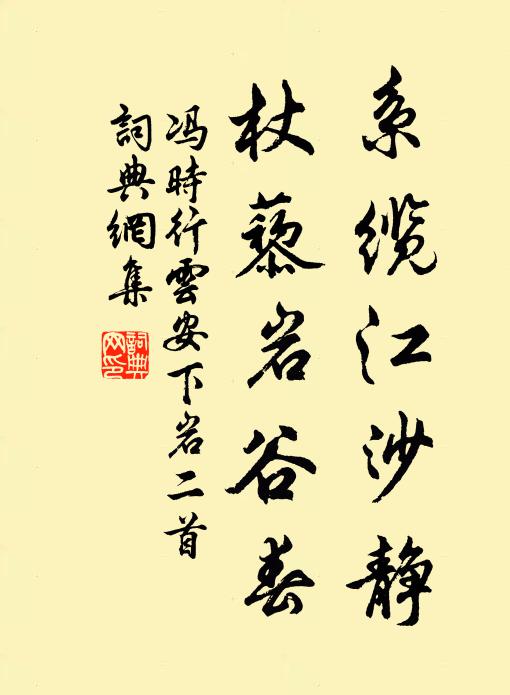 系缆江沙静
杖藜岩谷春
冯時行雲安下岩二首
詞典網集
詞典
网印